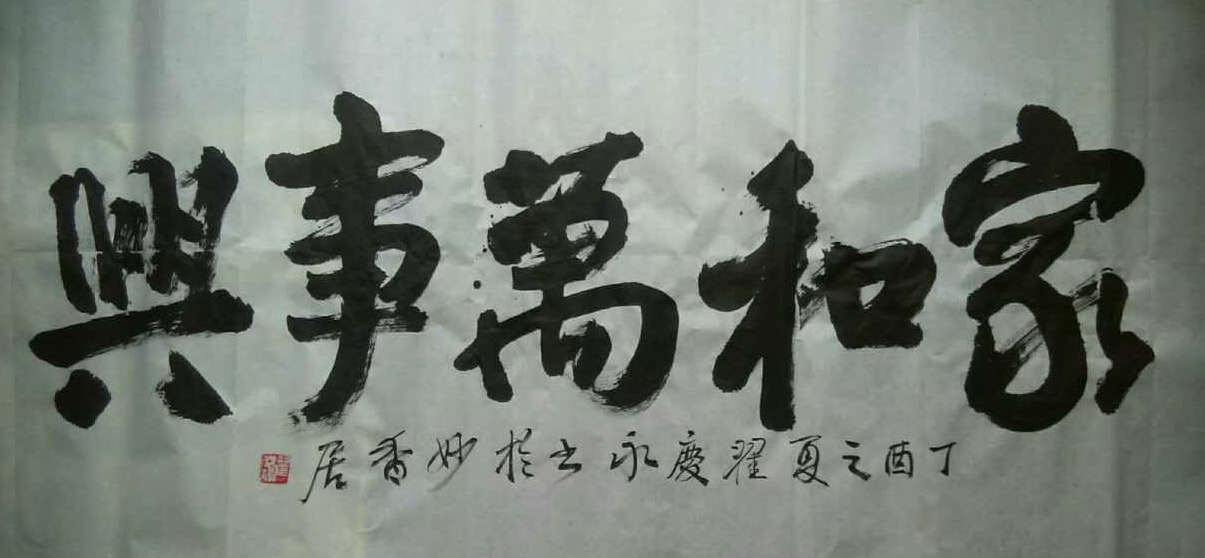 家和萬事興
丁酉之夏翟慶永书於妙香居